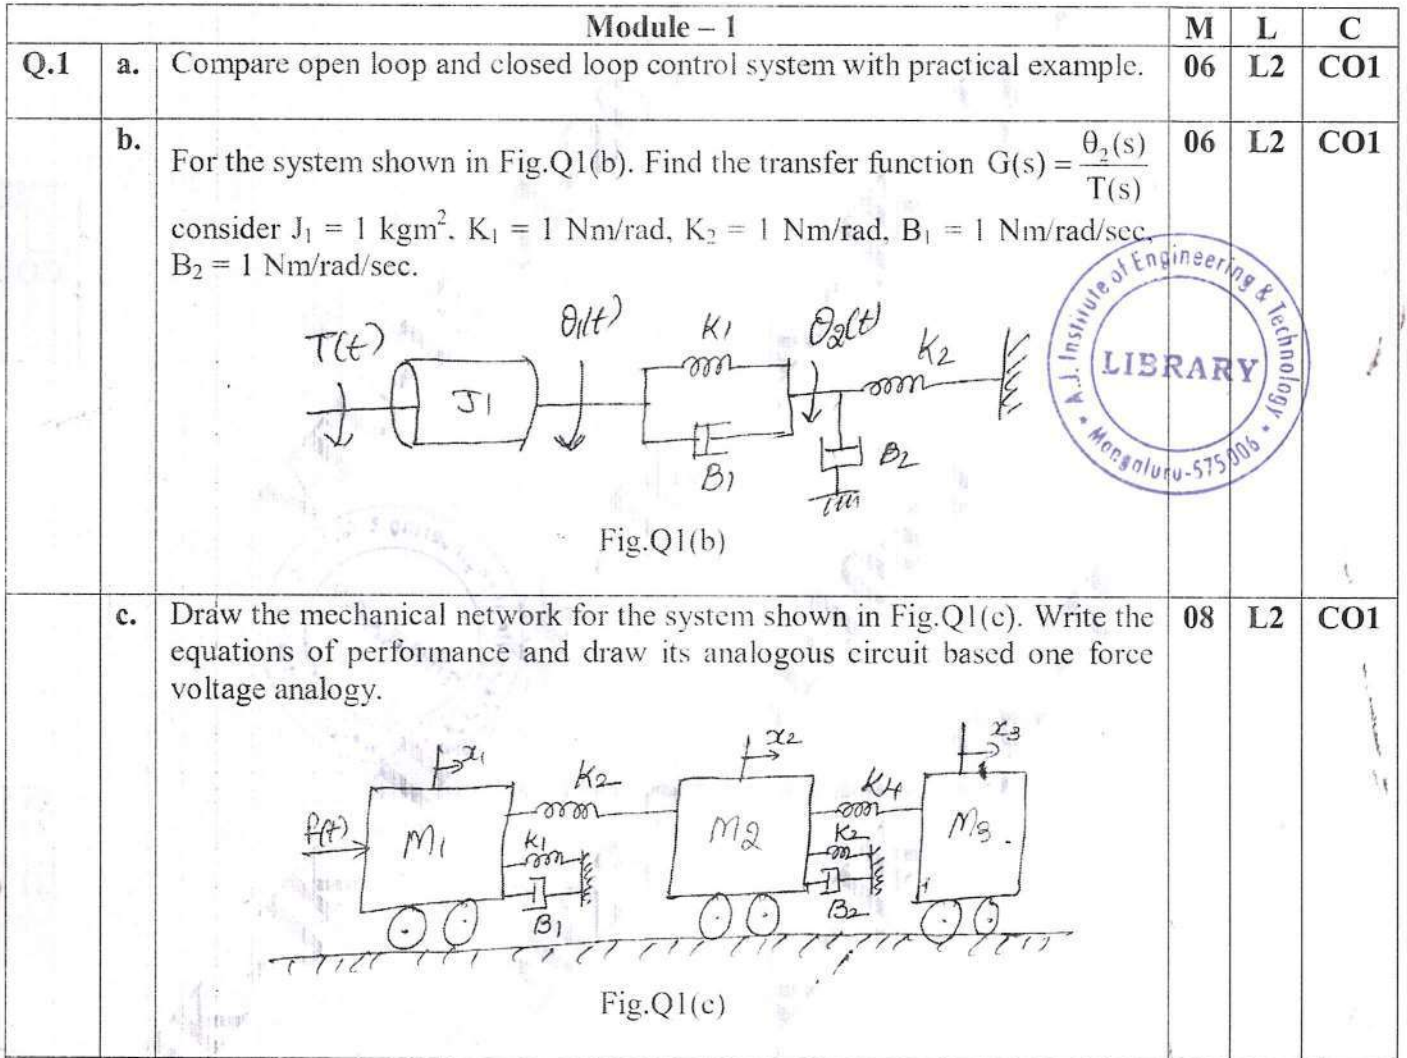 Module – 1 M L C
Q.1 a. Compare open loop and closed loop control system with practical example. 06 L2 CO1
b. For the system shown in Fig.Q1(b). Find the transfer function G(s) = θ₂(s)/T(s) 06 L2 CO1
consider J₁ = 1 kgm². K₁ = 1 Nm/rad, K₂ = 1 Nm/rad, B₁ = 1 Nm/rad/sec,
B₂ = 1 Nm/rad/sec.
T(t) J1 θ1(t) K1 B1 θ2(t) K2 B2
A.J. Institute of Engineering & Technology
LIBRARY
* Mangaluru-575006 *
Fig.Q1(b)
c. Draw the mechanical network for the system shown in Fig.Q1(c). Write the 08 L2 CO1
equations of performance and draw its analogous circuit based one force
voltage analogy.
x1 x2 x3
K2 K4
f(t) M1 K1 M2 K2 M3
B1 B2
Fig.Q1(c)